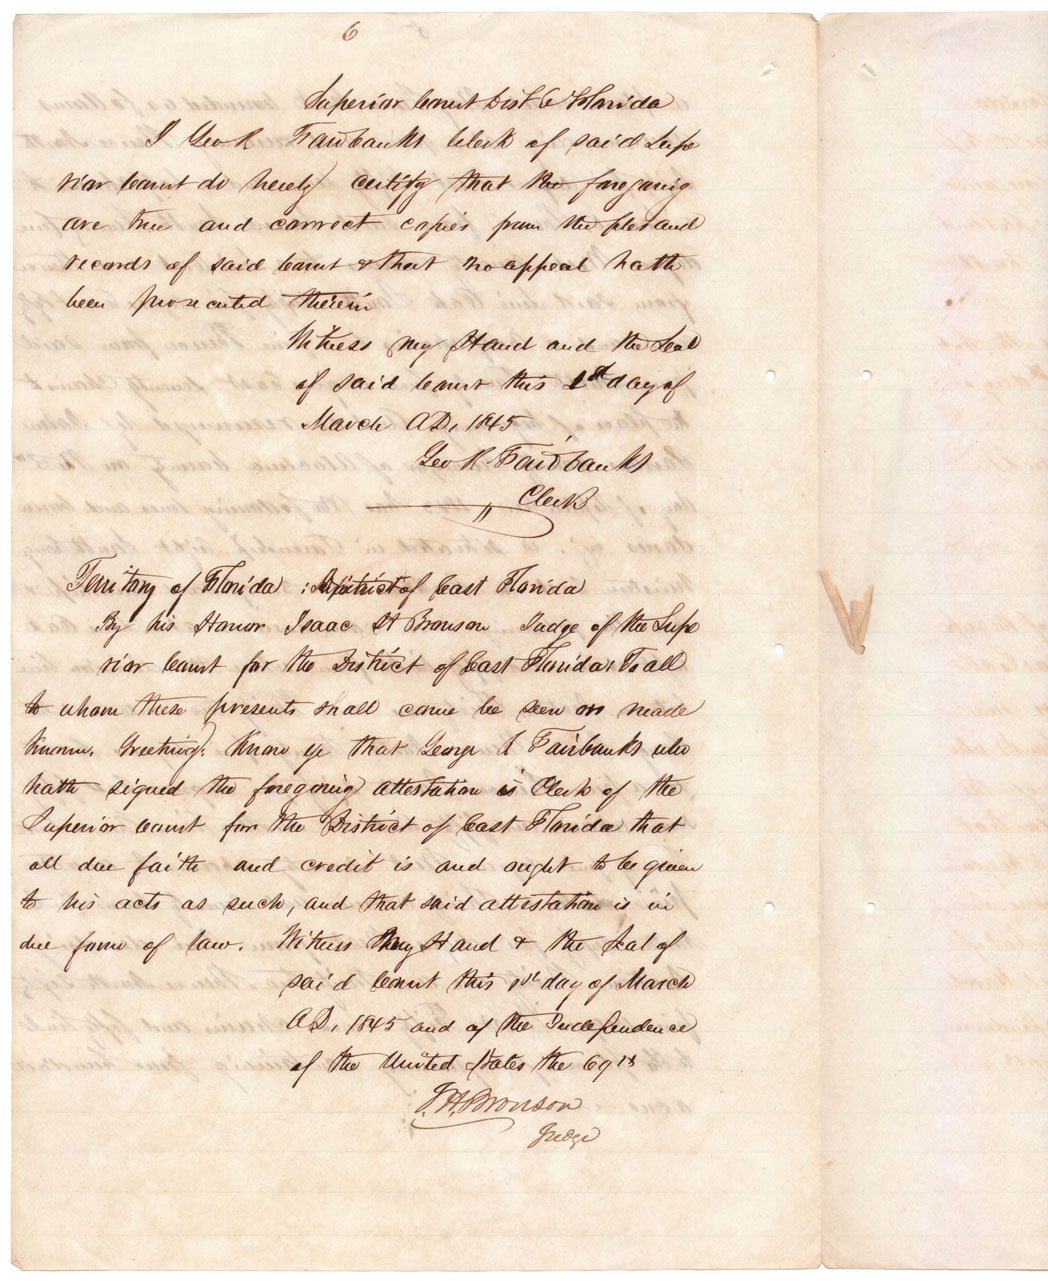 6
Superior Court Dist E Florida
I Geo R Fairbanks Clerk of said Supe
rior Court do hereby certify that the foregoing
are true and correct copies from the files and
records of said Court & that no appeal hath
been prosecuted therein
Witness my Hand and the Seal
of said Court this 1st day of
March AD, 1845
Geo R Fairbanks
Clerk
Territory of Florida : District of East Florida
By his Honor Isaac H Bronson Judge of the Supe
rior Court for the District of East Florida To all
to whom these presents shall come be seen or made
known, Greeting: Know ye that George R Fairbanks who
hath signed the foregoing attestation is Clerk of the
Superior Court for the District of East Florida that
all due faith and credit is and ought to be given
to his acts as such, and that said attestation is in
due form of law. Witness my Hand & the Seal of
said Court this 1st day of March
AD, 1845 and of the Independence
of the United States the 69th
I. H. Bronson
Judge